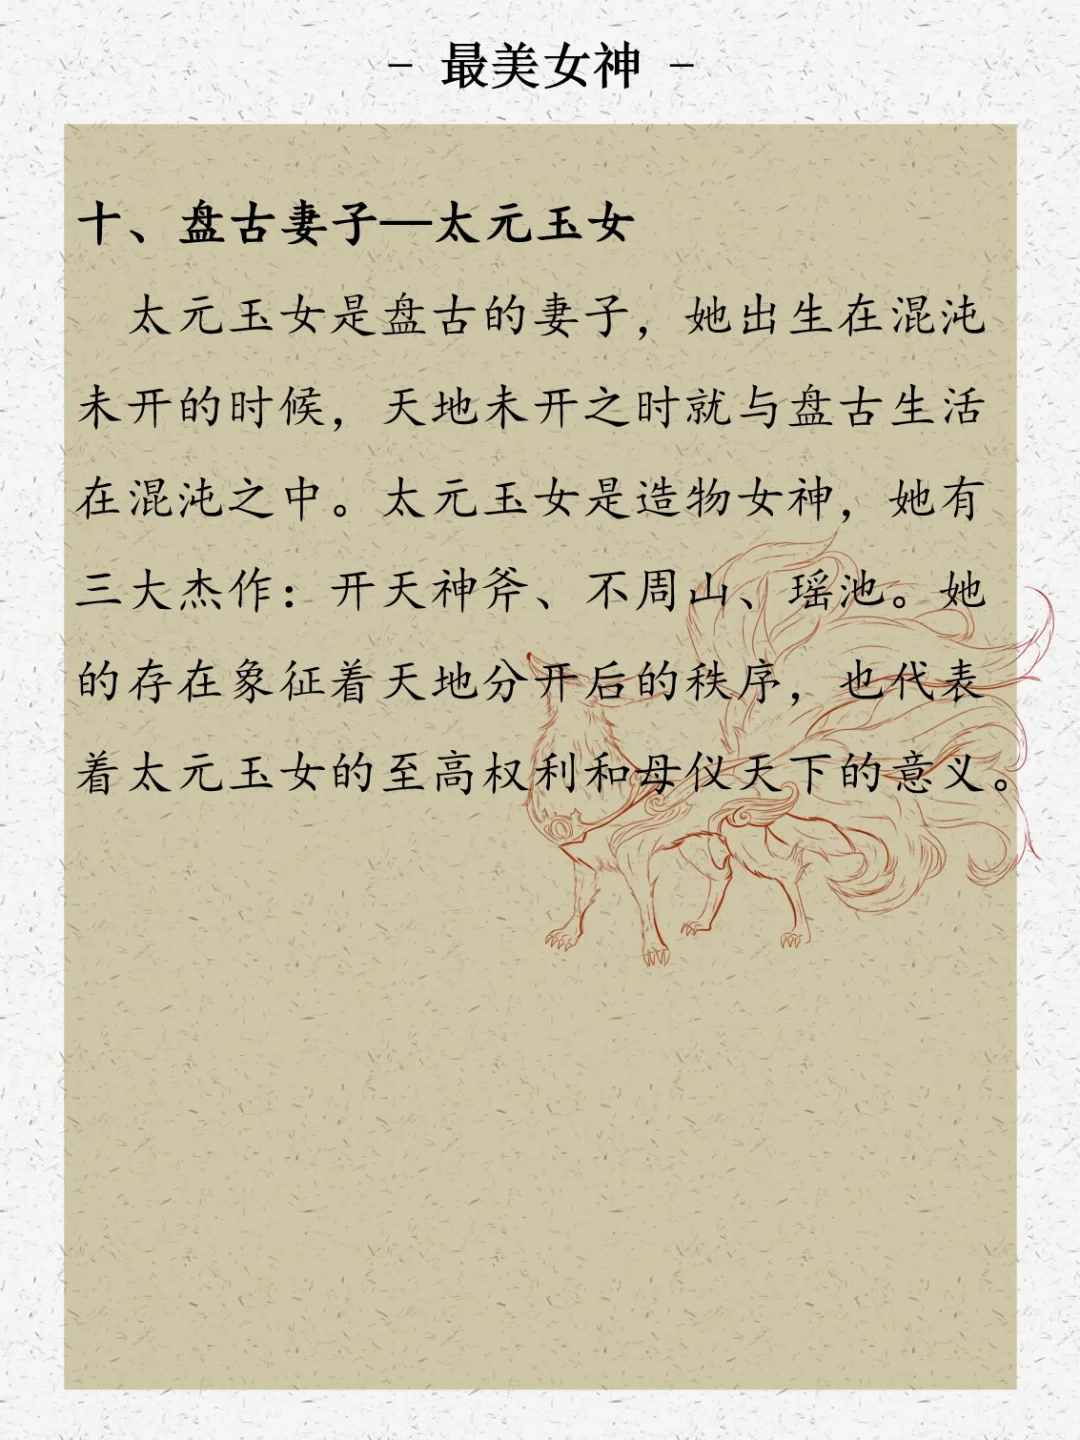 - 最美女神 -
十、盘古妻子—太元玉女
太元玉女是盘古的妻子，她出生在混沌
未开的时候，天地未开之时就与盘古生活
在混沌之中。太元玉女是造物女神，她有
三大杰作：开天神斧、不周山、瑶池。她
的存在象征着天地分开后的秩序，也代表
着太元玉女的至高权利和母仪天下的意义。